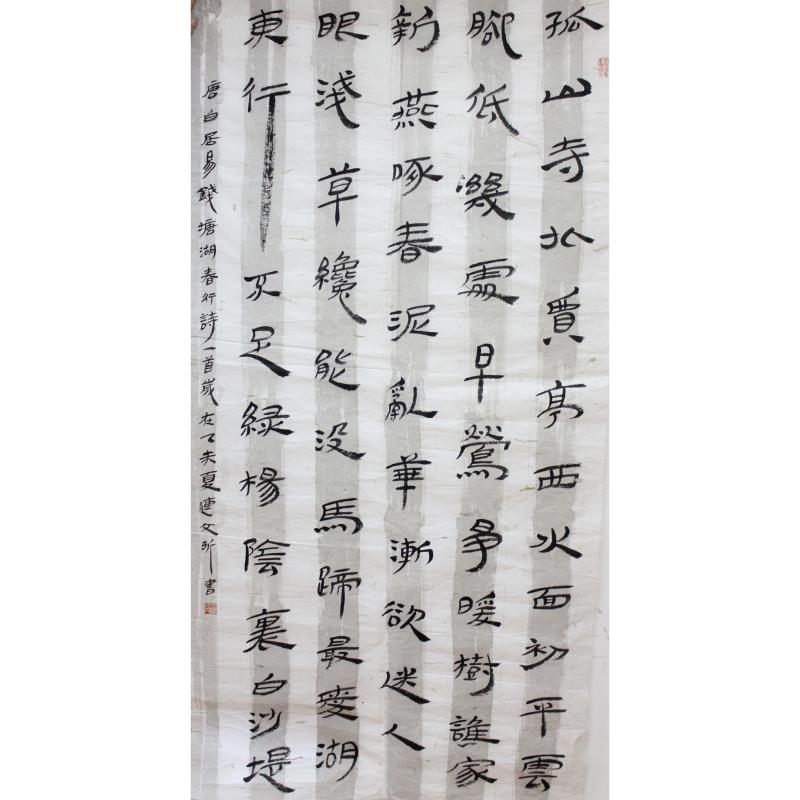 孤山寺北賈亭西水面初平雲
腳低幾處早鶯爭暖樹誰家
新燕啄春泥亂華漸欲迷人
眼淺草纔能沒馬蹄最愛湖
東行不足綠楊陰裏白沙堤
唐白居易錢塘湖春行詩一首歲在乙未夏連文昕書